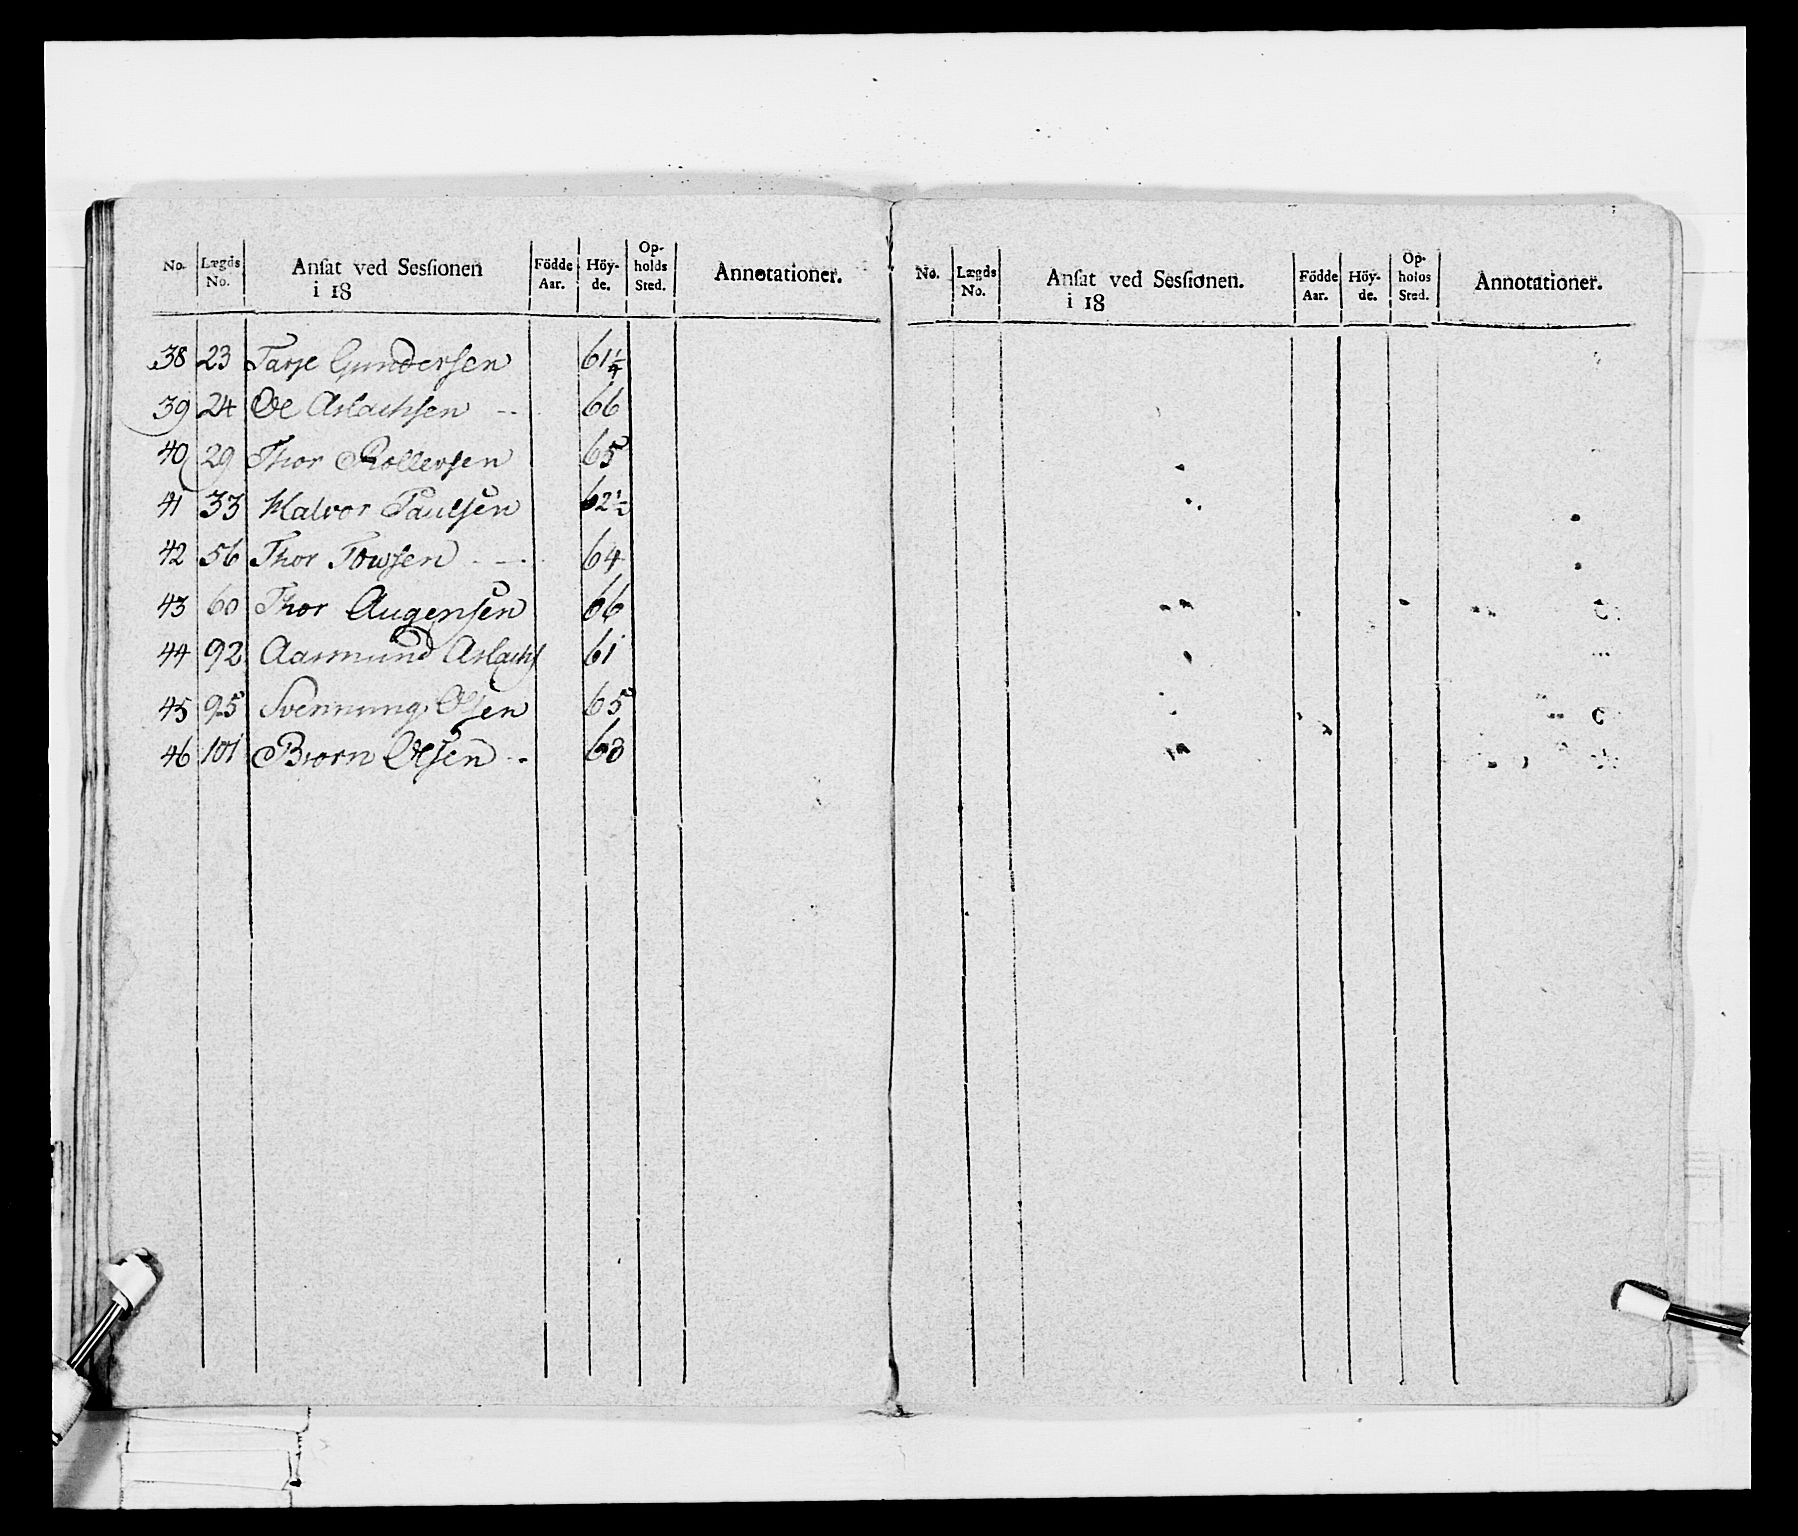 No. Lægds No. Ansat ved Sessionen i 18 Födde Aar. Höy-de. Op-holds Sted. Annotationer.
38 23 Tarje Gundersen 61 1/4
39 24 Ole Aslachsen -- 66
40 29 Thor Rollevsen 65
41 33 Halvor Paulsen 62 1/2
42 56 Thor Towsen - - 64
43 60 Thor Augensen 66
44 92 Aasmund Aslachs 61
45 95 Svennung Olsen 65
46 101 Biorn Olsen - - 63
No. Lægds No. Ansat ved Sessionen. i 18 Födde Aar. Höy-de. Op-holds Sted. Annotationer.